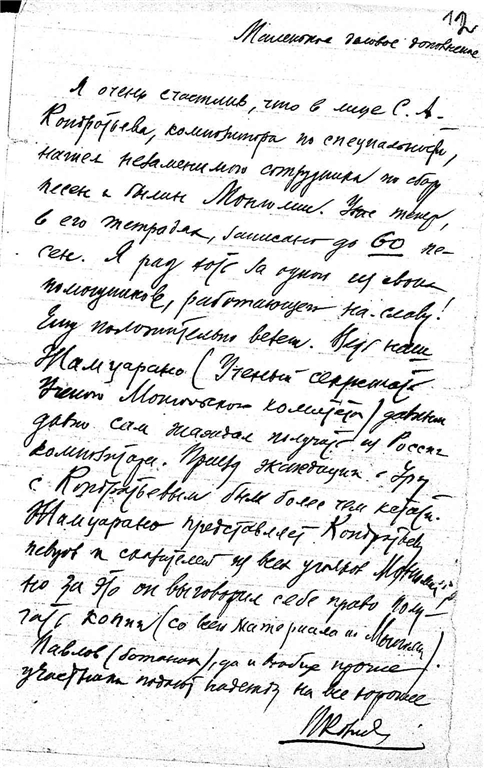 12
Маленькое деловое дополнение
Я очень счастлив, что в лице С. А.
Кондратьева, композитора по специальности,
нашел незаменимого сотрудника по сбору
песен и былин Монголии. Уже теперь,
в его тетрадях, записано до 60 пе-
сен. Я рад хоть за одного из своих
помощников, работающего на-славу!
Ему положительно везет. Друг наш
Жамцарано (Ученый секретарь
Ученого Монгольского комитета) давным
давно сам жаждал получить из России
композитора. Приезд экспедиции в Ургу
с Кондратьевым был более чем кстати.
Жамцарано представляет Кондратьеву
певцов и сказителей из всех уголков Монголии,
но за это он выговорил себе право полу-
чать копии (со всех материалов по Монголии).
Павлов (ботаник), да и вообще прочие
участники подают надежды на все хорошее